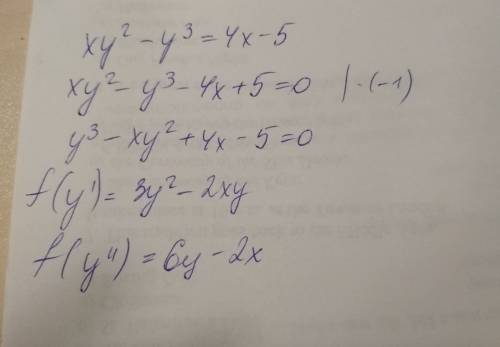 xy² - y³ = 4x - 5
xy² - y³ - 4x + 5 = 0 | · (-1)
y³ - xy² + 4x - 5 = 0
f(y') = 3y² - 2xy
f(y'') = 6y - 2x